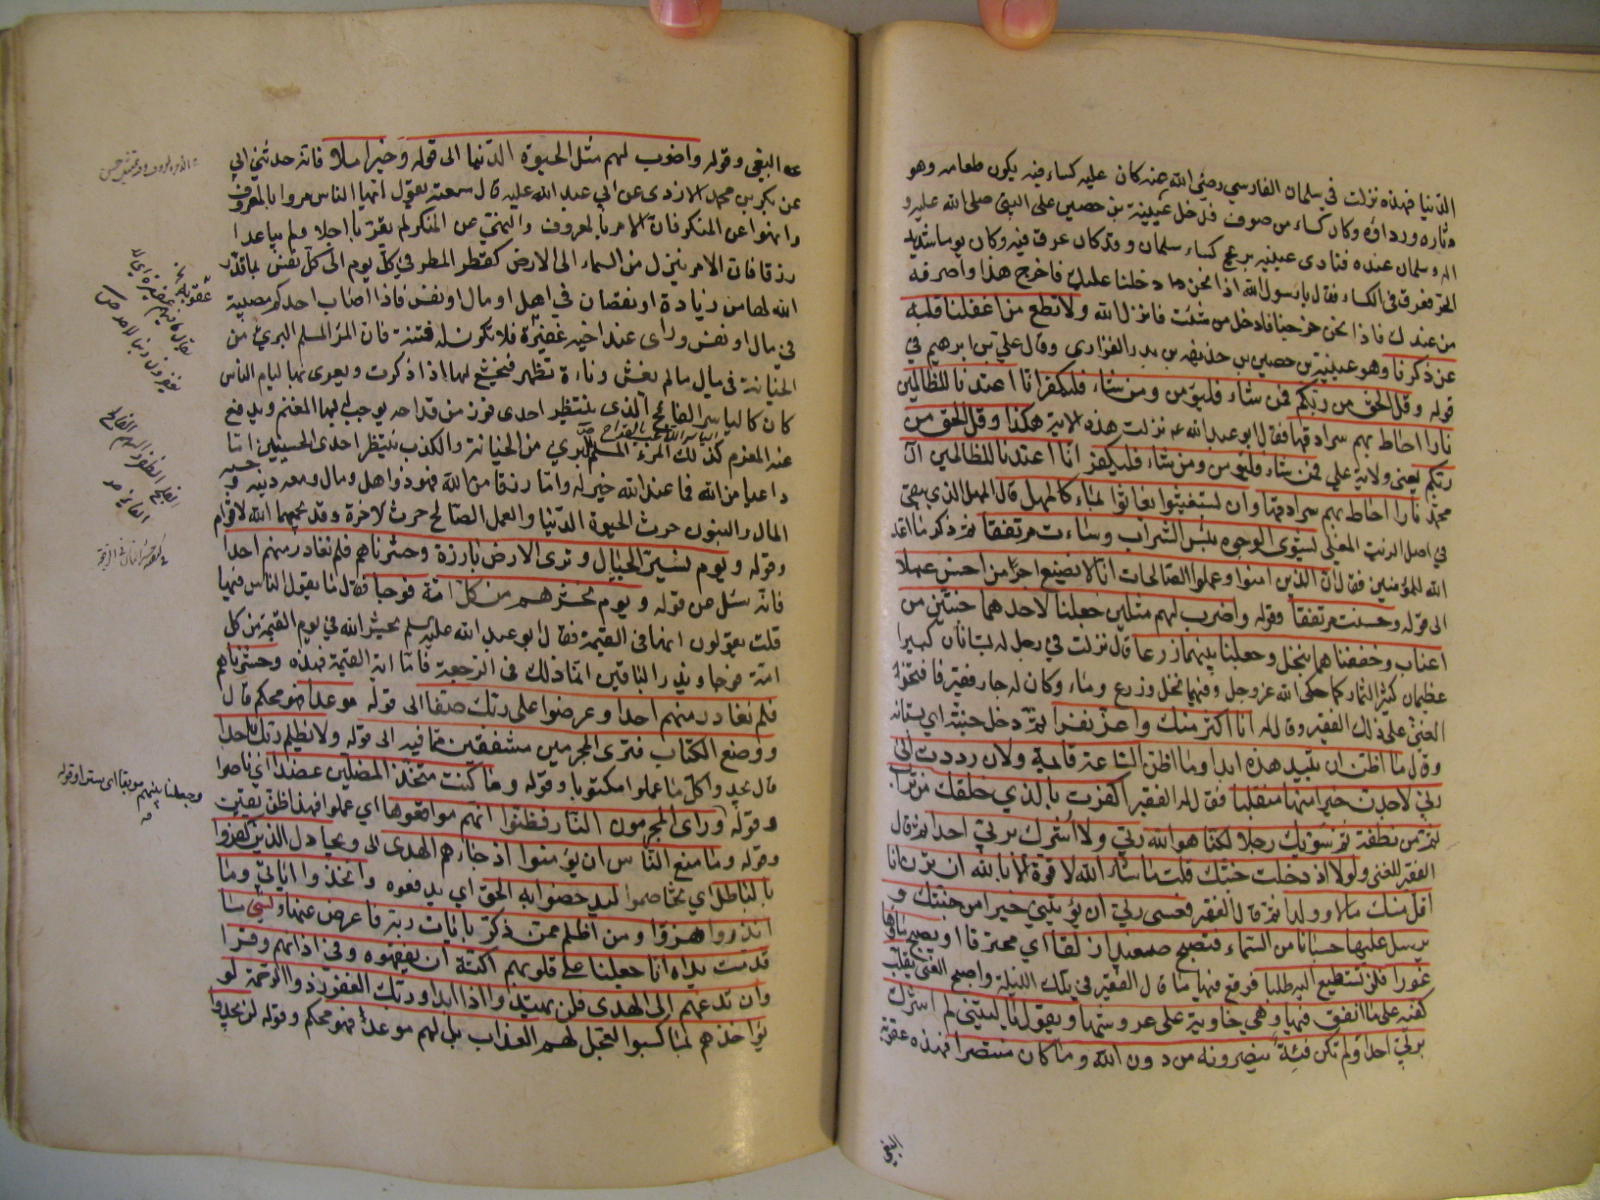 الدنيا فهذه نزلت في سلمان الفارسي رضي الله عنه كان عليه كساء فيه يكون طعامه وهو
دثاره ورداؤه وكان كساء من صوف فدخل عيينة بن حصين على النبي صلى الله عليه و
اله وسلمان عنده فتاذى عيينة بريح كساء سلمان وقد كان عرق فيه وكان يوما شديد
الحر فعرق في الكساء فقال يا رسول الله اذا نحن دخلنا عليك فاخرج هذا واصرفه
من عندك فاذا نحن خرجنا فادخل من شئت فانزل الله ولا تطع من اغفلنا قلبه
عن ذكرنا وهو عيينة بن حصين بن حذيفة بن بدر الفزاري وقال علي بن ابرهيم في
قوله وقل الحق من ربكم فمن شاء فليؤمن ومن شاء فليكفر انا اعتدنا للظالمين
نارا احاط بهم سرادقها فقال ابو عبد الله عه نزلت هذه الاية هكذا وقل الحق من
ربكم يعني ولاية علي فمن شاء فليؤمن ومن شاء فليكفر انا اعتدنا للظالمين آل
محمد نارا احاط بهم سرادقها وان يستغيثوا يغاثوا بماء كالمهل قال المهل الذي يبقى
في اصل الزيت المغلي يشوي الوجوه بئس الشراب وساءت مرتفقا ثم ذكر ما اعد
الله للمؤمنين فقال ان الذين امنوا وعملوا الصالحات انا لا نضيع اجر من احسن عملا
الى قوله وحسنت مرتفقا وقوله واضرب لهم مثلين جعلنا لاحدهما جنتين من
اعناب وحففناهما بنخل وجعلنا بينهما زرعا قال نزلت في رجل له بستانان كبيرا
عظيمان كثير الثمار كما حكى الله عز وجل وفيهما نخل وزرع وماء وكان له جار فقير فافتخر
الغني على ذلك الفقير وقال له انا اكثر منك واعز نفرا ثم دخل جنته اي بستانه
وقال ما اظن ان تبيد هذه ابدا وما اظن الساعة قائمة ولان رددت الى
ربي لاجدن خيرا منها منقلبا فقال له الفقير اكفرت بالذي خلقك من تراب
ثم من نطفة ثم سويك رجلا لكنا هو الله ربي ولا اشرك بربي احدا ثم قال
الفقير للغني ولولا اذ دخلت جنتك قلت ما شاء الله لا قوة الا بالله ان ترن انا
اقل منك مالا وولدا ثم قال الفقير فعسى ربي ان يؤتيني خيرا من جنتك و
يرسل عليها حسبانا من السماء فتصبح صعيدا زلقا اي محترقا او يصبح ماؤها
غورا فلن تستطيع له طلبا فوقع فيها ما قال الفقير في تلك الليلة واصبح الغني يقلب
كفيه على ما انفق فيها وهي خاوية على عروشها ويقول يا ليتني لم اشرك
بربي احدا ولم تكن فئة ينصرونه من دون الله وما كان منتصرا فهذه عقوبة
البغي
عه البغي وقوله واضرب لهم مثل الحيوة الدنيا الى قوله وخير املا فانه حدثني ابي
عن بكر بن محمد الازدي عن ابي عبد الله عليه قال سمعته يقول ايها الناس مروا بالمعروف
وانهوا عن المنكر فان الامر بالمعروف والنهي عن المنكر لم يقربا اجلا ولم يباعدا
رزقا فان الامر ينزل من السماء الى الارض كقطر المطر في كل يوم الى كل نفس بما قدر
الله لها من زيادة او نقصان في اهل او مال او نفس فاذا اصاب احدكم مصيبة
في مال او نفس وراى عند اخيه غفيرة فلا تكون له فتنة فان المرء المسلم البري من
الخيانة في مال ما لم يغش دناءة تظهر فيخشع لها اذا ذكرت ويغرى بها ليام الناس
كان كالياسر الفالج الذي ينتظر احدى فوز من قداحه يوجب له بها المغنم ويدفع
عنه المغرم كذلك المرء المسلم البري من الخيانة والكذب ينتظر احدى الحسنيين اما
داعيا من الله فما عند الله خير له واما رزقا من الله فهو ذو اهل ومال ومعه دينه وحسبه
المال والبنون حرث الحيوة الدنيا والعمل الصالح حرث الاخرة وقد يجمعهما الله لاقوام
وقوله ويوم نسير الجبال وترى الارض بارزة وحشرناهم فلم نغادر منهم احدا
فانه سئل عن قوله ويوم نحشرهم من كل امة فوجا فقال ما يقول الناس فيها
قلت يقولون انها في القيمة فقال ابو عبد الله عليه السلم يحشر الله في يوم القيمة من كل
امة فوجا ويذر الباقين انما ذلك في الرجعة فاما اية القيمة فهذه وحشرناهم
فلم نغادر منهم احدا وعرضوا على ربك صفا الى قوله موعدا فهو محكم قال
ووضع الكتاب فترى المجرمين مشفقين مما فيه الى قوله ولا يظلم ربك احدا
قال يجدوا كل ما عملوا مكتوبا وقوله وما كنت متخذ المضلين عضدا اي ناصرا
وقوله وراى المجرمون النار فظنوا انهم مواقعوها اي علموا فهذا ظن يقين
وقوله وما منع الناس ان يؤمنوا اذ جاءهم الهدى الى ويجادل الذين كفروا
بالباطل اي يخاصموا ليدحضوا به الحق اي يدفعوه واتخذوا اياتي وما
انذروا هزوا ومن اظلم ممن ذكر بايات ربه فاعرض عنها ونسي ما
قدمت يداه انا جعلنا على قلوبهم اكنة ان يفقهوه وفي اذانهم وقرا
وان تدعهم الى الهدى فلن يهتدوا اذا ابدا وربك الغفور ذو الرحمة لو
يؤاخذهم بما كسبوا لعجل لهم العذاب بل لهم موعد فهو محكم وقوله لن يجدوا
وجعلنا بينهم موبقا اي سترا وقوله